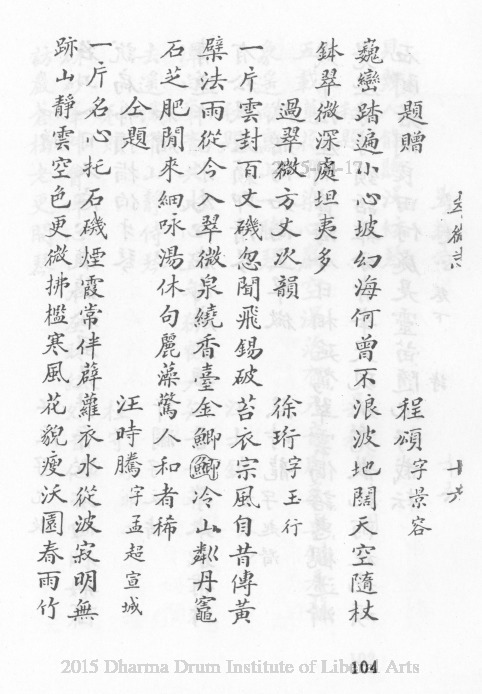 題贈 程頌字景容
巍巒踏遍小心坡幻海何曾不浪波地闊天空隨杖
鉢翠微深處坦夷多
過翠微方丈次韻 徐珩字玉行
一片雲封百丈磯忽聞飛錫破苔衣宗風自昔傳黃
檗法雨從今入翠微泉繞香臺金鯽鯽冷山粼丹竈
石芝肥閒來細咏湯休句麗藻驚人和者稀
仝題 汪時騰字孟超宣城
一片名心托石磯煙霞常伴薜蘿衣水從波寂明無
跡山靜雲空色更微拂檻寒風花貌瘦沃園春雨竹
104
2015 Dharma Drum Institute of Liberal Arts